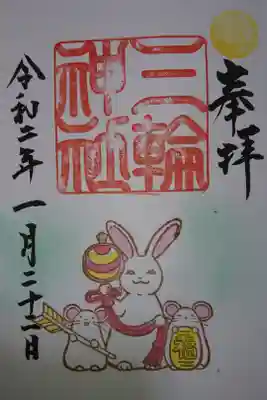 奉拝
三輪
神社
令和二年 一月二十二日